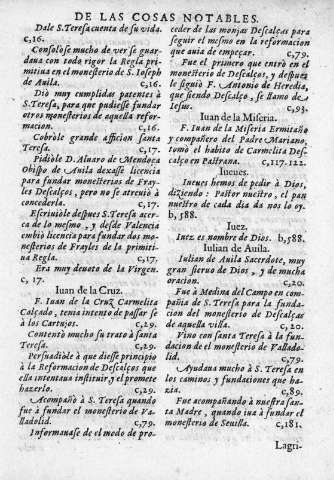 DE LAS COSAS NOTABLES.
Dale S. Teresa cuenta de su vida.
c,16.
Consolòse mucho de ver se guar-
daua con todo rigor la Regla pri-
mitiua en el monesterio de S. Ioseph
de Auila. c,16.
Diò muy cumplidas patentes à
S. Teresa, para que pudiesse fundar
otros monesterios de aquella refor-
macion. c,16.
Cobròle grande afficion santa
Teresa. c,17.
Pidiòle D. Aluaro de Mendoça
Obispo de Auila dexasse licencia
para fundar monesterios de Frayles
Descalços, pero no se atreuiò à
concederla. c,17.
Escriuiòle despues S. Teresa acer-
ca de lo mesmo, y desde Valencia
embiò licencia para fundar dos mo-
nesterios de Frayles de la primiti-
ua Regla. c,17.
Era muy deuoto de la Virgen.
c, 17.
Iuan de la Cruz.
F. Iuan de la Cruz Carmelita
Calçado, tenia intento de passar se
à los Cartujos. c,29.
Contentò mucho su trato à santa
Teresa. c,29.
Persuadiòle à que diesse principio
à la Reformacion de Descalços que
ella intentaua instituir, y el promete
hazerlo. c,29.
Acompañò à S. Teresa quando
fue à fundar el monesterio de Va-
lladolid. c,79.
Informauase de el modo de pro-
ceder de las monjas Descalças para
seguir el mesmo en la reformacion
que auia de empeçar. c,79.
Fue el primero que entrò en el
monesterio de Descalços, y despues
le siguiò F. Antonio de Heredia,
que siendo Descalço, se llamo de
Iesus. c,93.
Iuan de la Miseria.
F. Iuan de la Miseria Ermitaño
y compañero del Padre Mariano,
tomò el habito de Carmelita Des
calço en Pastrana. c,117.122.
Iueues.
Iueues hemos de pedir à Dios,
diziendo: Pastor nuestro, el pan
nuestro de cada dia da nos lo oy.
b, 588.
Iuez.
Iuez es nombre de Dios. b,588.
Iulian de Auila.
Iulian de Auila Sacerdote, muy
gran sieruo de Dios, y de mucha
oracion. c,20.
Fue à Medina del Campo en com-
pañia de S. Teresa para la funda-
cion del monesterio de Descalças
de aquella villa. c, 20.
Vino con santa Teresa à la fun-
dacion de el monesterio de Vallado-
lid. c,79.
Ayudaua mucho à S. Teresa en
los caminos y fundaciones que ha-
zia. c,89.
Fue acompañando à nuestra san-
ta Madre, quando iua à fundar el
monesterio de Seuilla. c,181.
Lagri-